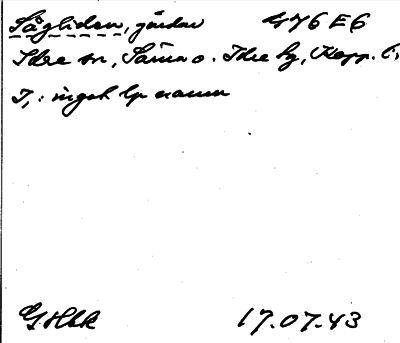 Såglidan, gårdar 476 E6
Idre sn, Särna o. Idre tg, Kopp. l.
I,: inget lp namn
G. Hbk 17.07.43